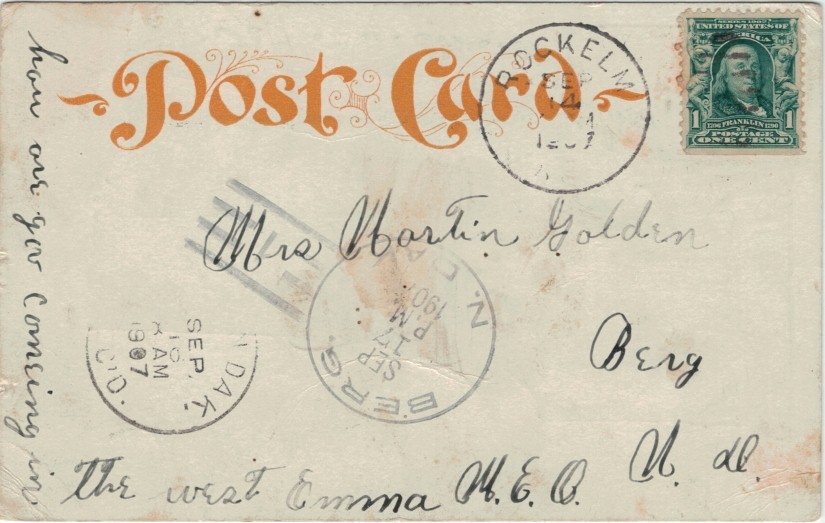 Post Card
ROCKELM
SEP
14
1907
SERIES 1902
UNITED STATES OF
AMERICA
1 1
FRANKLIN
POSTAGE
ONE CENT
Mrs Martin Golden
Berg
N. D.
BERG.
SEP
17
P M
1907
N. DAK
N DAK.
SEP.
AM
1907
R.P.O.
how are you comeing in
the west Emma M.E.O.